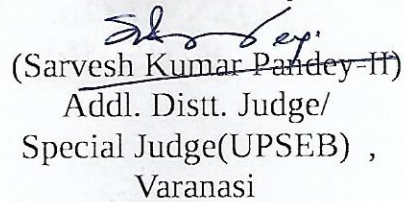 (Sarvesh Kumar Pandey-II)
Addl. Distt. Judge/
Special Judge(UPSEB) ,
Varanasi